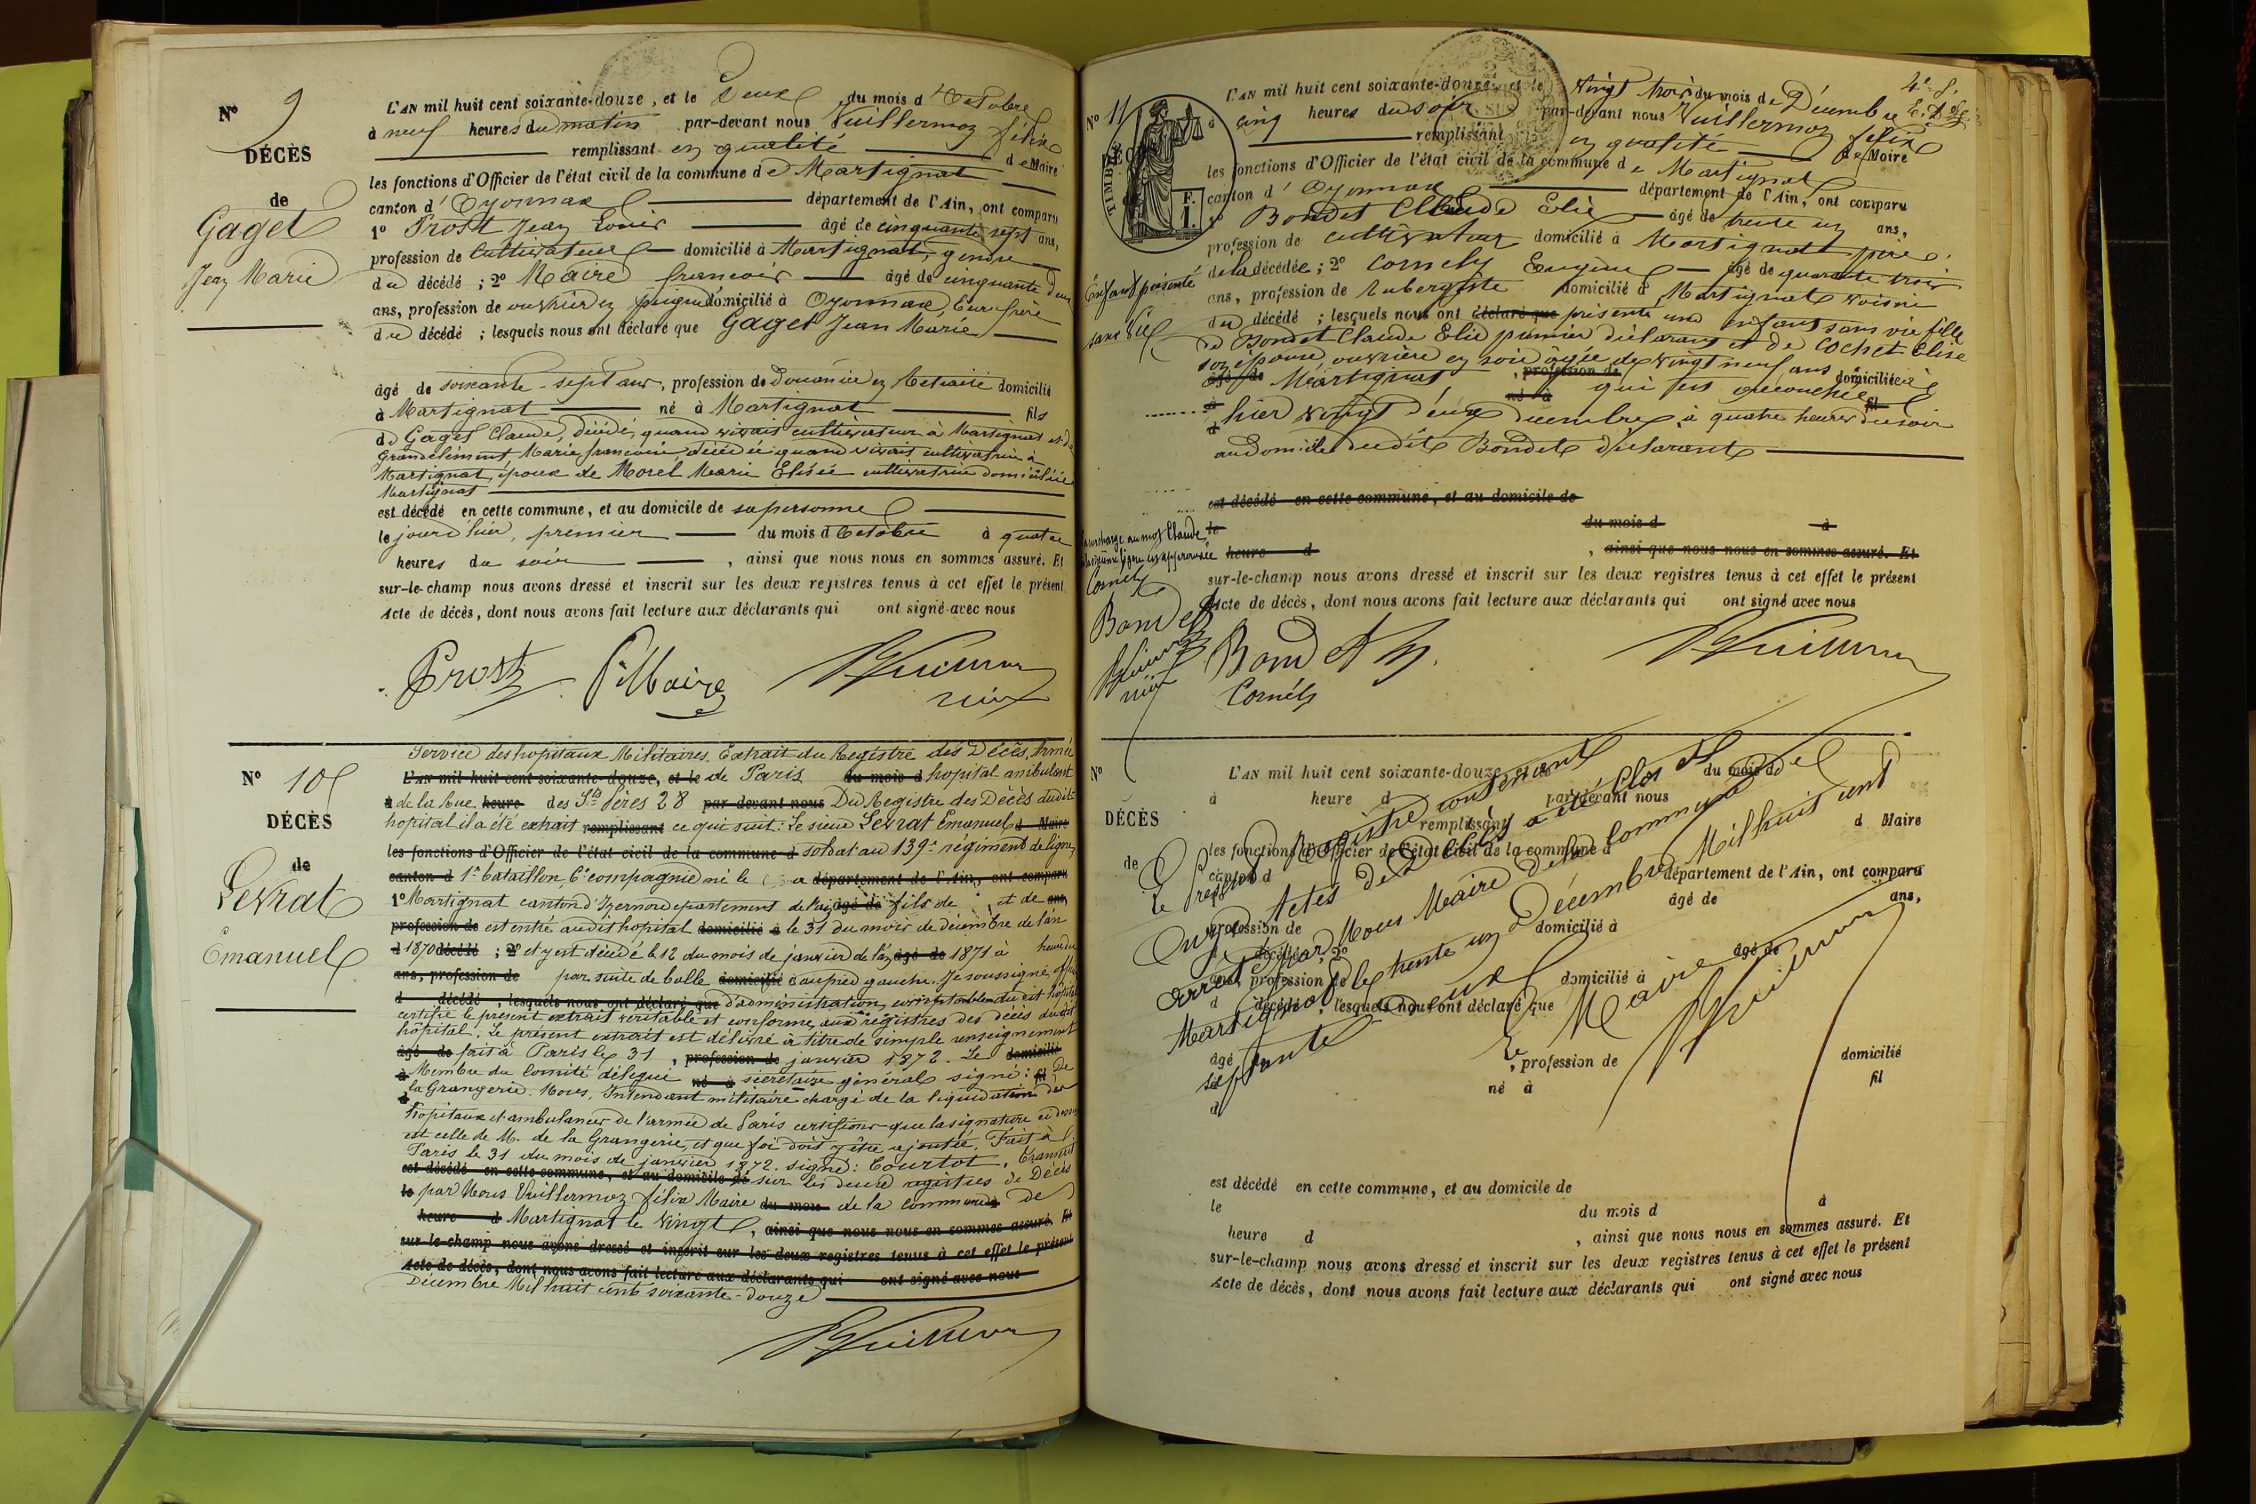 N° 9
DÉCÈS
de
Gaget
Jean Marie
L'AN mil huit cent soixante-douze, et le Deux du mois d'Octobre
à neuf heures du matin par-devant nous Vuillermoz félix
remplissant en qualité de Maire
les fonctions d'Officier de l'état civil de la commune de Martignat
canton d'Oyonnax département de l'Ain, ont comparu
1° Prost Jean Louis âgé de cinquante sept ans,
profession de Cultivateur domicilié à Martignat, gendre
du décédé ; 2° Maire françois âgé de cinquante deux
ans, profession de ouvrier en peigne domicilié à Oyonnax, beau frère
du décédé ; lesquels nous ont déclaré que Gaget Jean Marie
âgé de soixante-sept ans, profession de Douanier en Retraite domicilié
à Martignat né à Martignat fils
de Gaget Claude, décédé, quand vivait cultivateur à Martignat et de
Grandclément Marie françoise décédée quand vivait cultivatrice à
Martignat, époux de Morel Marie Elisée cultivatrice domiciliée
Martignat
est décédé en cette commune, et au domicile de sa personne
le jour d'hier, premier du mois d'Octobre à quatre
heures du soir, ainsi que nous nous en sommes assuré. Et
sur-le-champ nous avons dressé et inscrit sur les deux registres tenus à cet effet le présent
Acte de décès, dont nous avons fait lecture aux déclarants qui ont signé avec nous
Prost F. Maire Vuillermoz
N° 10
DÉCÈS
de
Levrat
Emanuel
Service des hopitaux Militaires. Extrait du Registre des Décès, Armée
L'AN mil huit cent soixante-douze, et le de Paris du mois d hopital ambulant
à de la Rue heure des Sts Pères 28 par-devant nous Du Registre des Décès dudit
hopital il a été extrait remplissant ce qui suit : Le sieur Levrat Emanuel d Maire
les fonctions d'Officier de l'état civil de la commune d soldat au 139e régiment de ligne,
canton d 1er bataillon, 6e compagnie né le à département de l'Ain, ont comparu
1° Martignat canton d'Izernore département de l'ain âgé de fils de et de ans,
profession de est entré audit hopital domicilié à le 31 du mois de décembre de l'an
d 1870 décédé ; 2° et y est décédé le 12 du mois de janvier de l'an âgé de 1871 à heure du
ans, profession de par suite de balle domicilié à au pied gauche. Je soussigné, officier
d décédé, lesquels nous ont déclaré que d'administration, comptable du dit hôpital
certifie le présent extrait véritable et conforme aux régistres des décès dudit
hôpital. Le présent extrait est délivré à titre de simple renseignement
âgé de fait à Paris le 31, profession de janvier 1872. Le domicilié
à Membre du Comité délégué né à sécretaire général signé : fil De
d la Grangerie. Nous, Intendant militaire chargé de la liquidation des
hopitaux et ambulances de l'armée de Paris certifions que la signature ci dessus
est celle de M. de la Grangerie, et que foi doit y être ajoutée. Fait à
Paris le 31 du mois de janvier 1872. signé : Courtot. Transcrit
est décédé en cette commune, et au domicile de sur les deux registres de Décès
le par Nous Vuillermoz félix Maire du mois de la commune d de
heure d Martignat le vingt, ainsi que nous nous en sommes assuré. Et
sur-le-champ nous avons dressé et inscrit sur les deux registres tenus à cet effet le présent
Acte de décès, dont nous avons fait lecture aux déclarants qui ont signé avec nous
Décembre Mil huit cent soixante-douze
Vuillermoz
N° 11
DÉCÈS
TIMBRE
F.
1.
Enfant présenté
sans Vie
L'AN mil huit cent soixante-douze, et le Vingt trois du mois de Décembre
à cinq heures du soir par-devant nous Vuillermoz félix
remplissant en qualité de Maire
les fonctions d'Officier de l'état civil de la commune de Martignat
canton d'Oyonnax département de l'Ain, ont comparu
1° Bondet Claude Elie âgé de trente un ans,
profession de cultivateur domicilié à Martignat père
de la décédée ; 2° Cornely Eugène âgé de quarante trois
ans, profession de Aubergiste domicilié à Martignat voisin
du décédé ; lesquels nous ont déclaré que présenté un enfant sans vie fille
de Bondet Claude Elie premier déclarant et de Cochet Elise
son épouse, ouvrière en soie âgée de vingt neuf ans domiciliée à
âgé de Martignat, profession de qui est accouchée
né à fil
à hier vingt deux décembre à quatre heures du soir
au Domicile dudit Bondet déclarant
est décédé en cette commune, et au domicile de
le du mois d à
heure d, ainsi que nous nous en sommes assuré. Et
sur-le-champ nous avons dressé et inscrit sur les deux registres tenus à cet effet le présent
Acte de décès, dont nous avons fait lecture aux déclarants qui ont signé avec nous
surcharge au mot Claude
ligne est approuvée
Cornely
Bondet
Vuillermoz
Bondet
Cornély
Vuillermoz
N°
DÉCÈS
de
L'AN mil huit cent soixante-douze, et le du mois de
à heure d par-devant nous
remplissant d Maire
les fonctions d'Officier de l'état civil de la commune d
canton d département de l'Ain, ont comparu
1° âgé de ans,
profession de domicilié à
d décédé ; 2° âgé de
ans, profession de domicilié à
d décédé ; lesquels nous ont déclaré que
âgé de, profession de domicilié
à né à fil
d
est décédé en cette commune, et au domicile de
le du mois d à
heure d, ainsi que nous nous en sommes assuré. Et
sur-le-champ nous avons dressé et inscrit sur les deux registres tenus à cet effet le présent
Acte de décès, dont nous avons fait lecture aux déclarants qui ont signé avec nous
Le Présent Registre contenant
Onze Actes de Décès a été Clos et
arrêté Par Nous Maire de la Commune de
Martignat le trente un Décembre Mil huit cent
septante deux
Le Maire
Vuillermoz